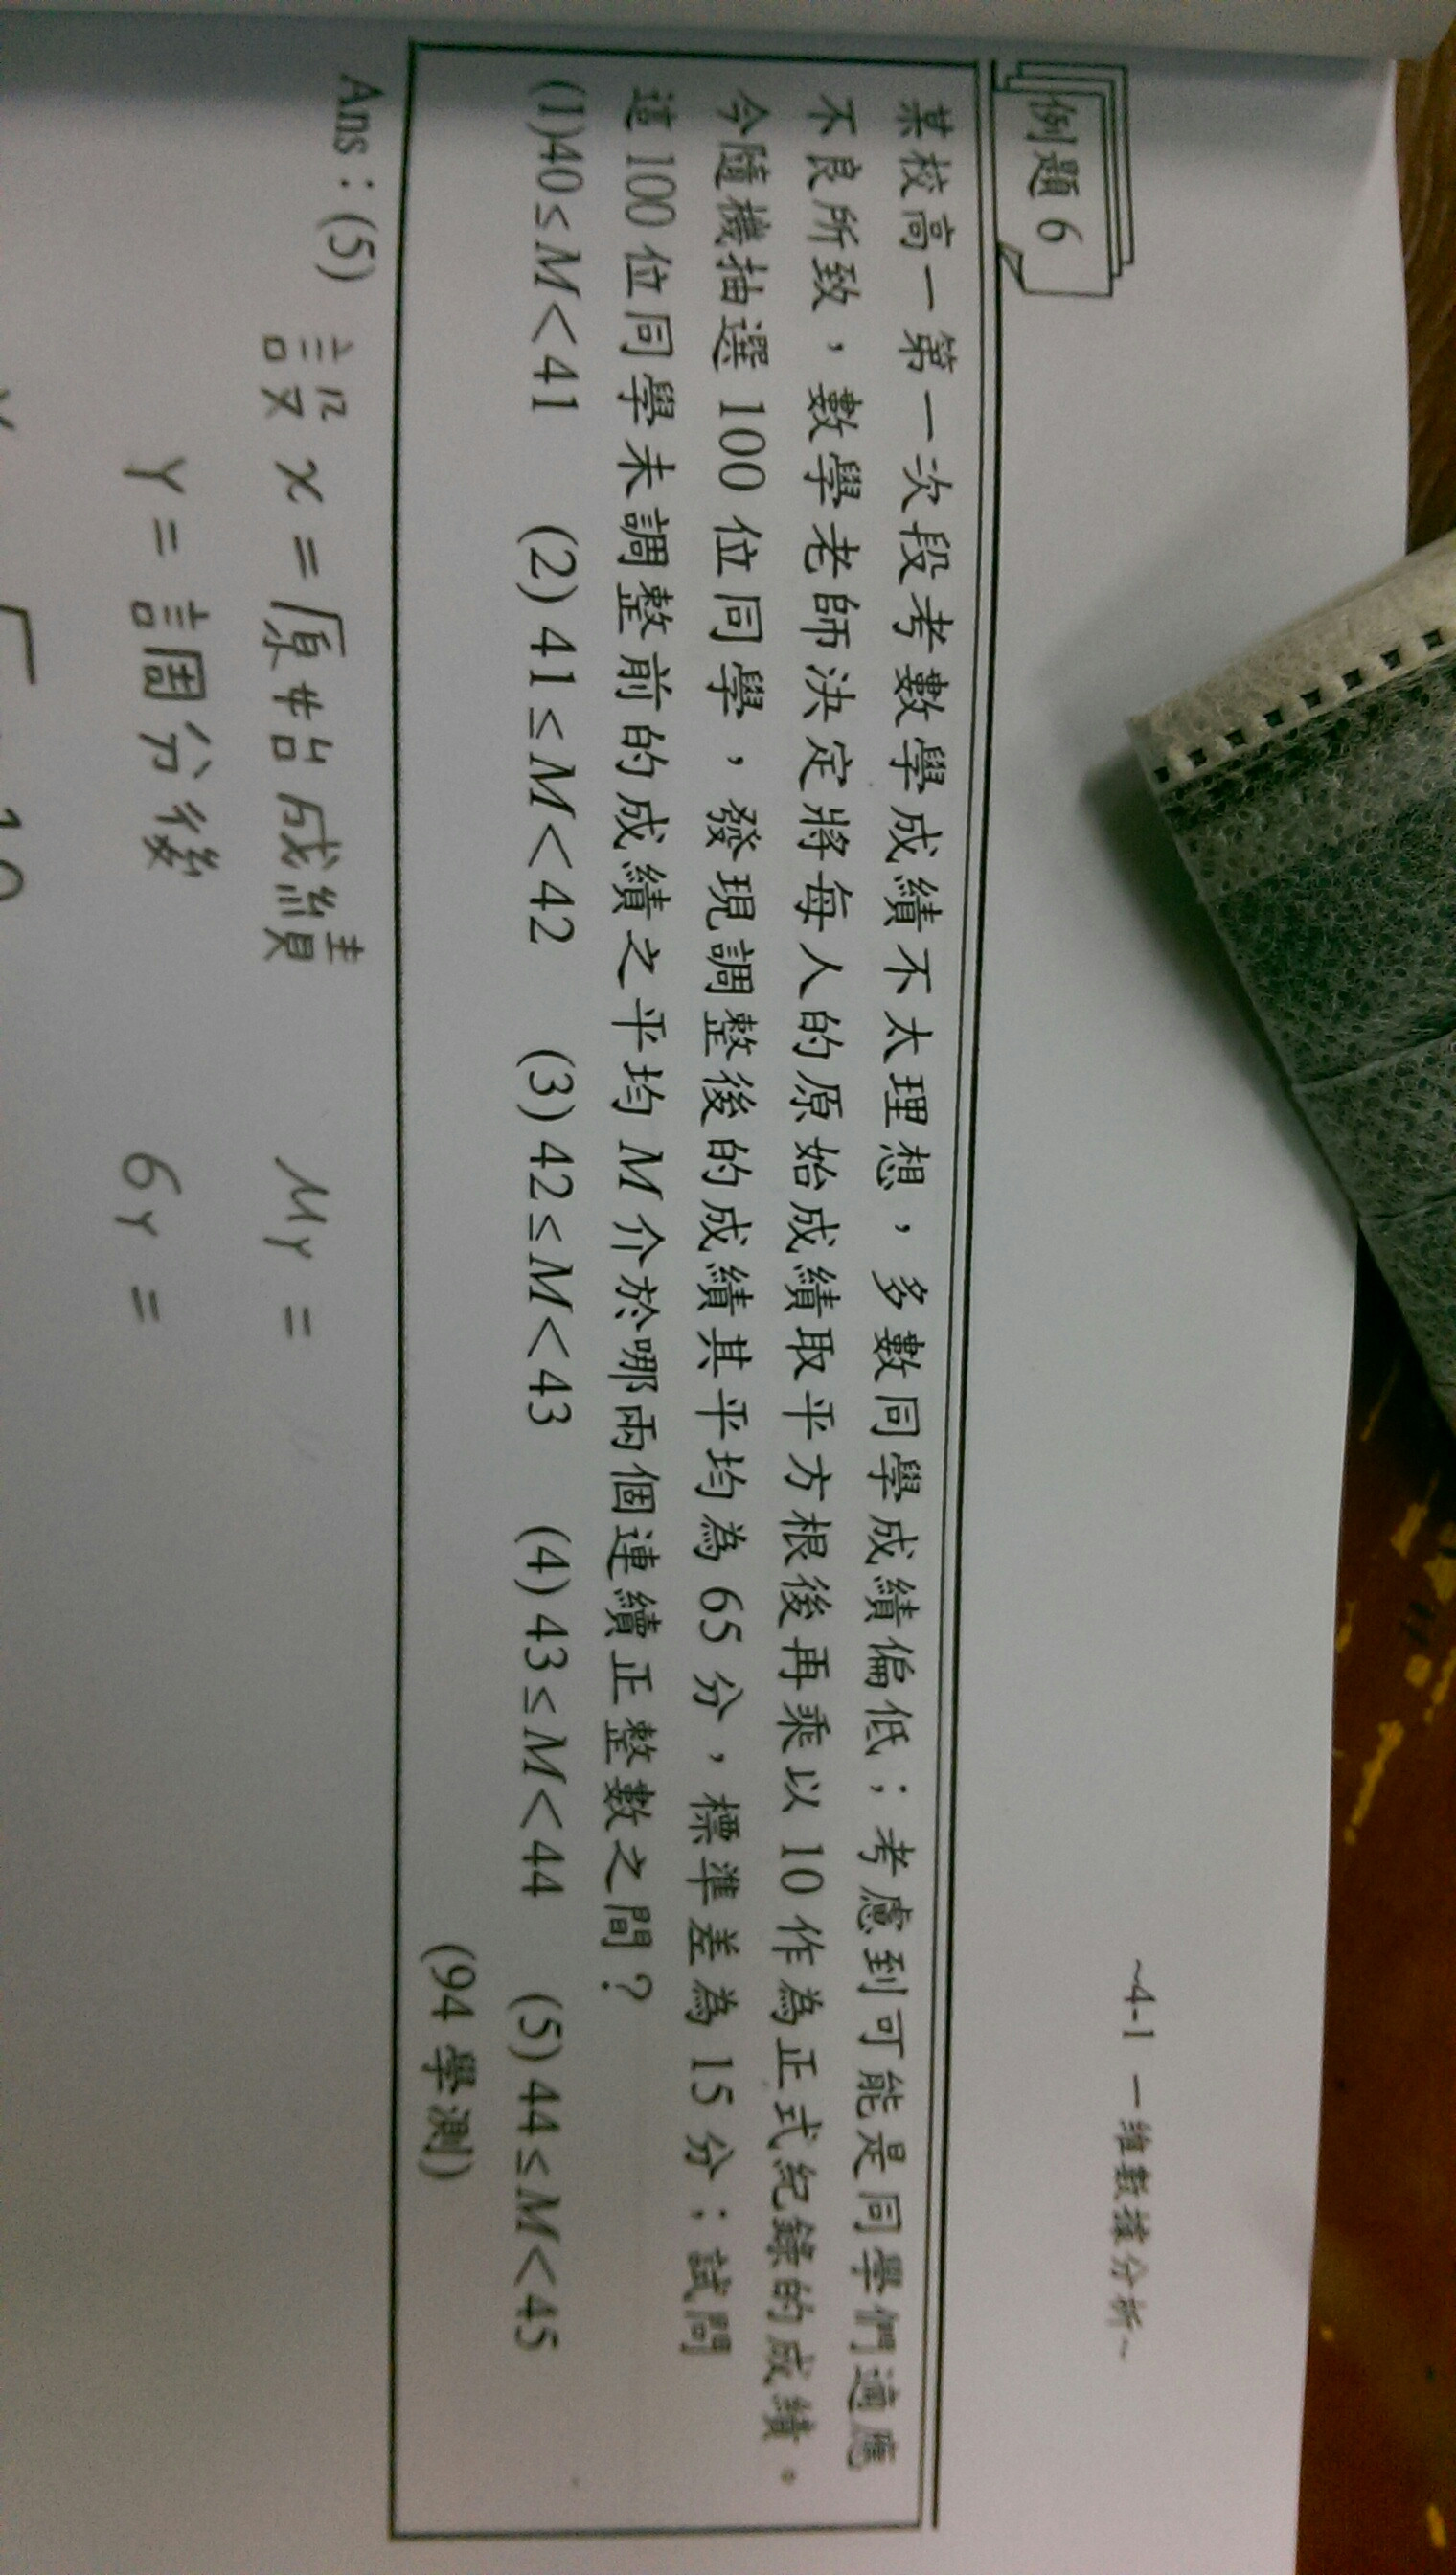 ~4-1 一維數據分析~
例題 6
某校高一第一次段考數學成績不太理想，多數同學成績偏低；考慮到可能是同學們適應
不良所致，數學老師決定將每人的原始成績取平方根後再乘以 10 作為正式紀錄的成績。
今隨機抽選 100 位同學，發現調整後的成績其平均為 65 分，標準差為 15 分；試問
這 100 位同學未調整前的成績之平均 M 介於哪兩個連續正整數之間？
(1)40≤M<41 (2) 41≤M<42 (3) 42≤M<43 (4) 43≤M<44 (5) 44≤M<45
(94 學測)
Ans：(5) 設 x = 原始成績 μY =
Y = 調分後 σY =